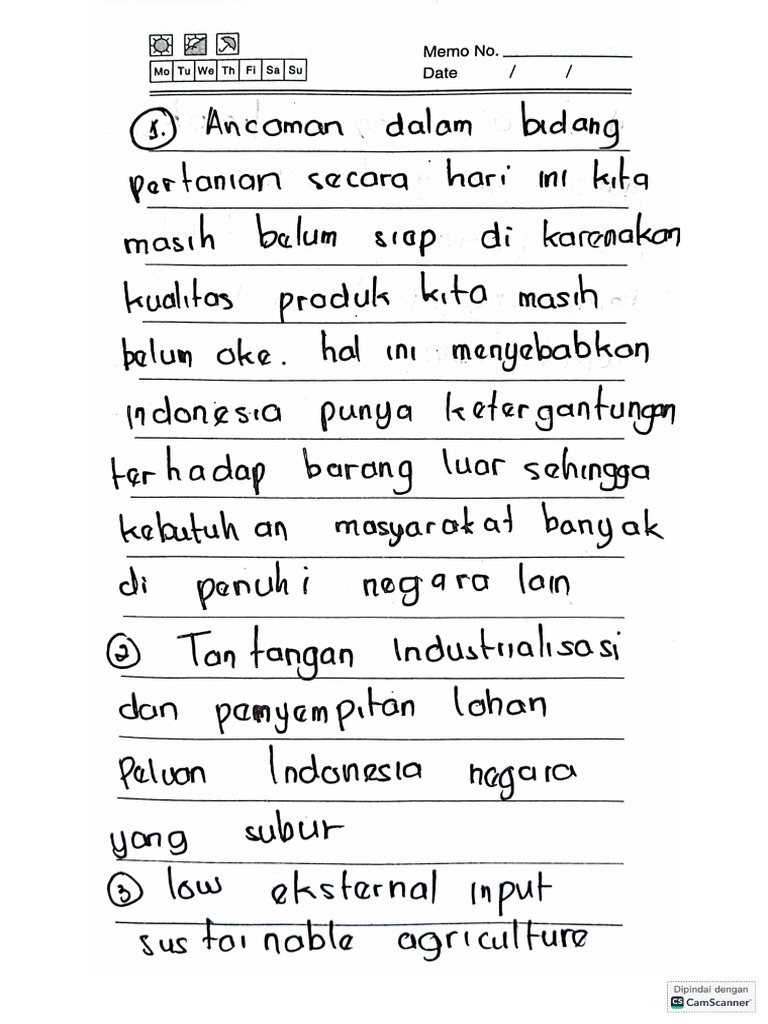 Memo No.
Mo Tu We Th Fi Sa Su
Date / /
1. Ancaman dalam bidang
pertanian secara hari ini kita
masih belum siap di karenakan
kualitas produk kita masih
belum oke. hal ini menyebabkan
indonesia punya ketergantungan
terhadap barang luar sehingga
kebutuhan masyarakat banyak
di penuhi negara lain
2 Tantangan industrialisasi
dan pemyempitan lahan
Peluan Indonesia negara
yang subur
3 low eksternal input
sustainable agriculture
Dipindai dengan
CS CamScanner